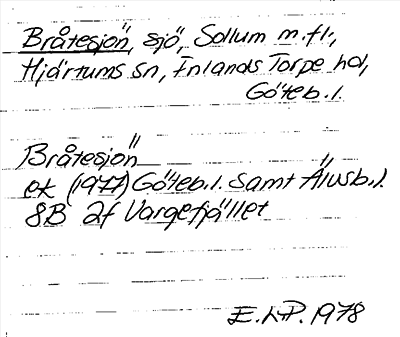 Bråtesjön, sjö, Sollum m.fl.,
Hjärtums sn, Inlands Torpe hd,
Göteb.l.
Bråtesjön
ek (1977) Göteb.l. samt Älvsb.l.
8B 2f Vargefjället
E.h.P. 1978